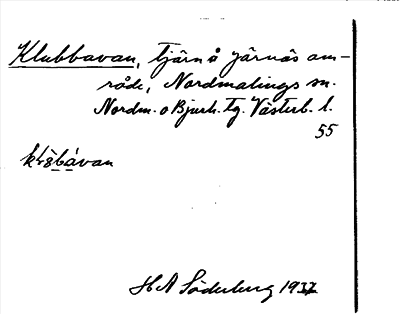 Klubbavan, tjärn å Järnäs om-
råde, Nordmalings sn.
Nordm. o Bjurh. tg. Västerb. l.
55
H A Söderberg 1937